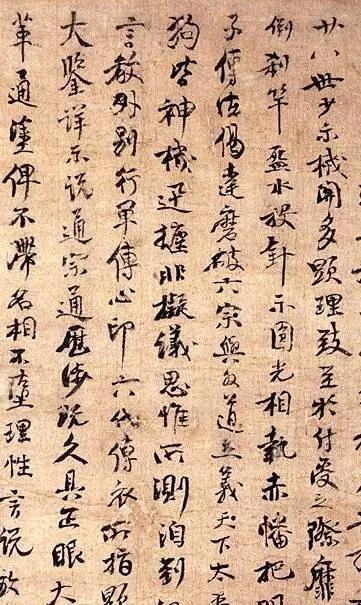 廿八世少示機關多顯理致至於付受之際靡
倒刹竿盋水投針示圓光相執赤幡把明
子傳法偈達磨破六宗與外道立義天下太平
狗皆神機迅捷非擬議思惟所測洎到
言教外別行單傳心印六代傳衣所指顯
大鑒詳示說通宗通歷涉既久具正眼大
革通塗俾不滯名相不墮理性言說放